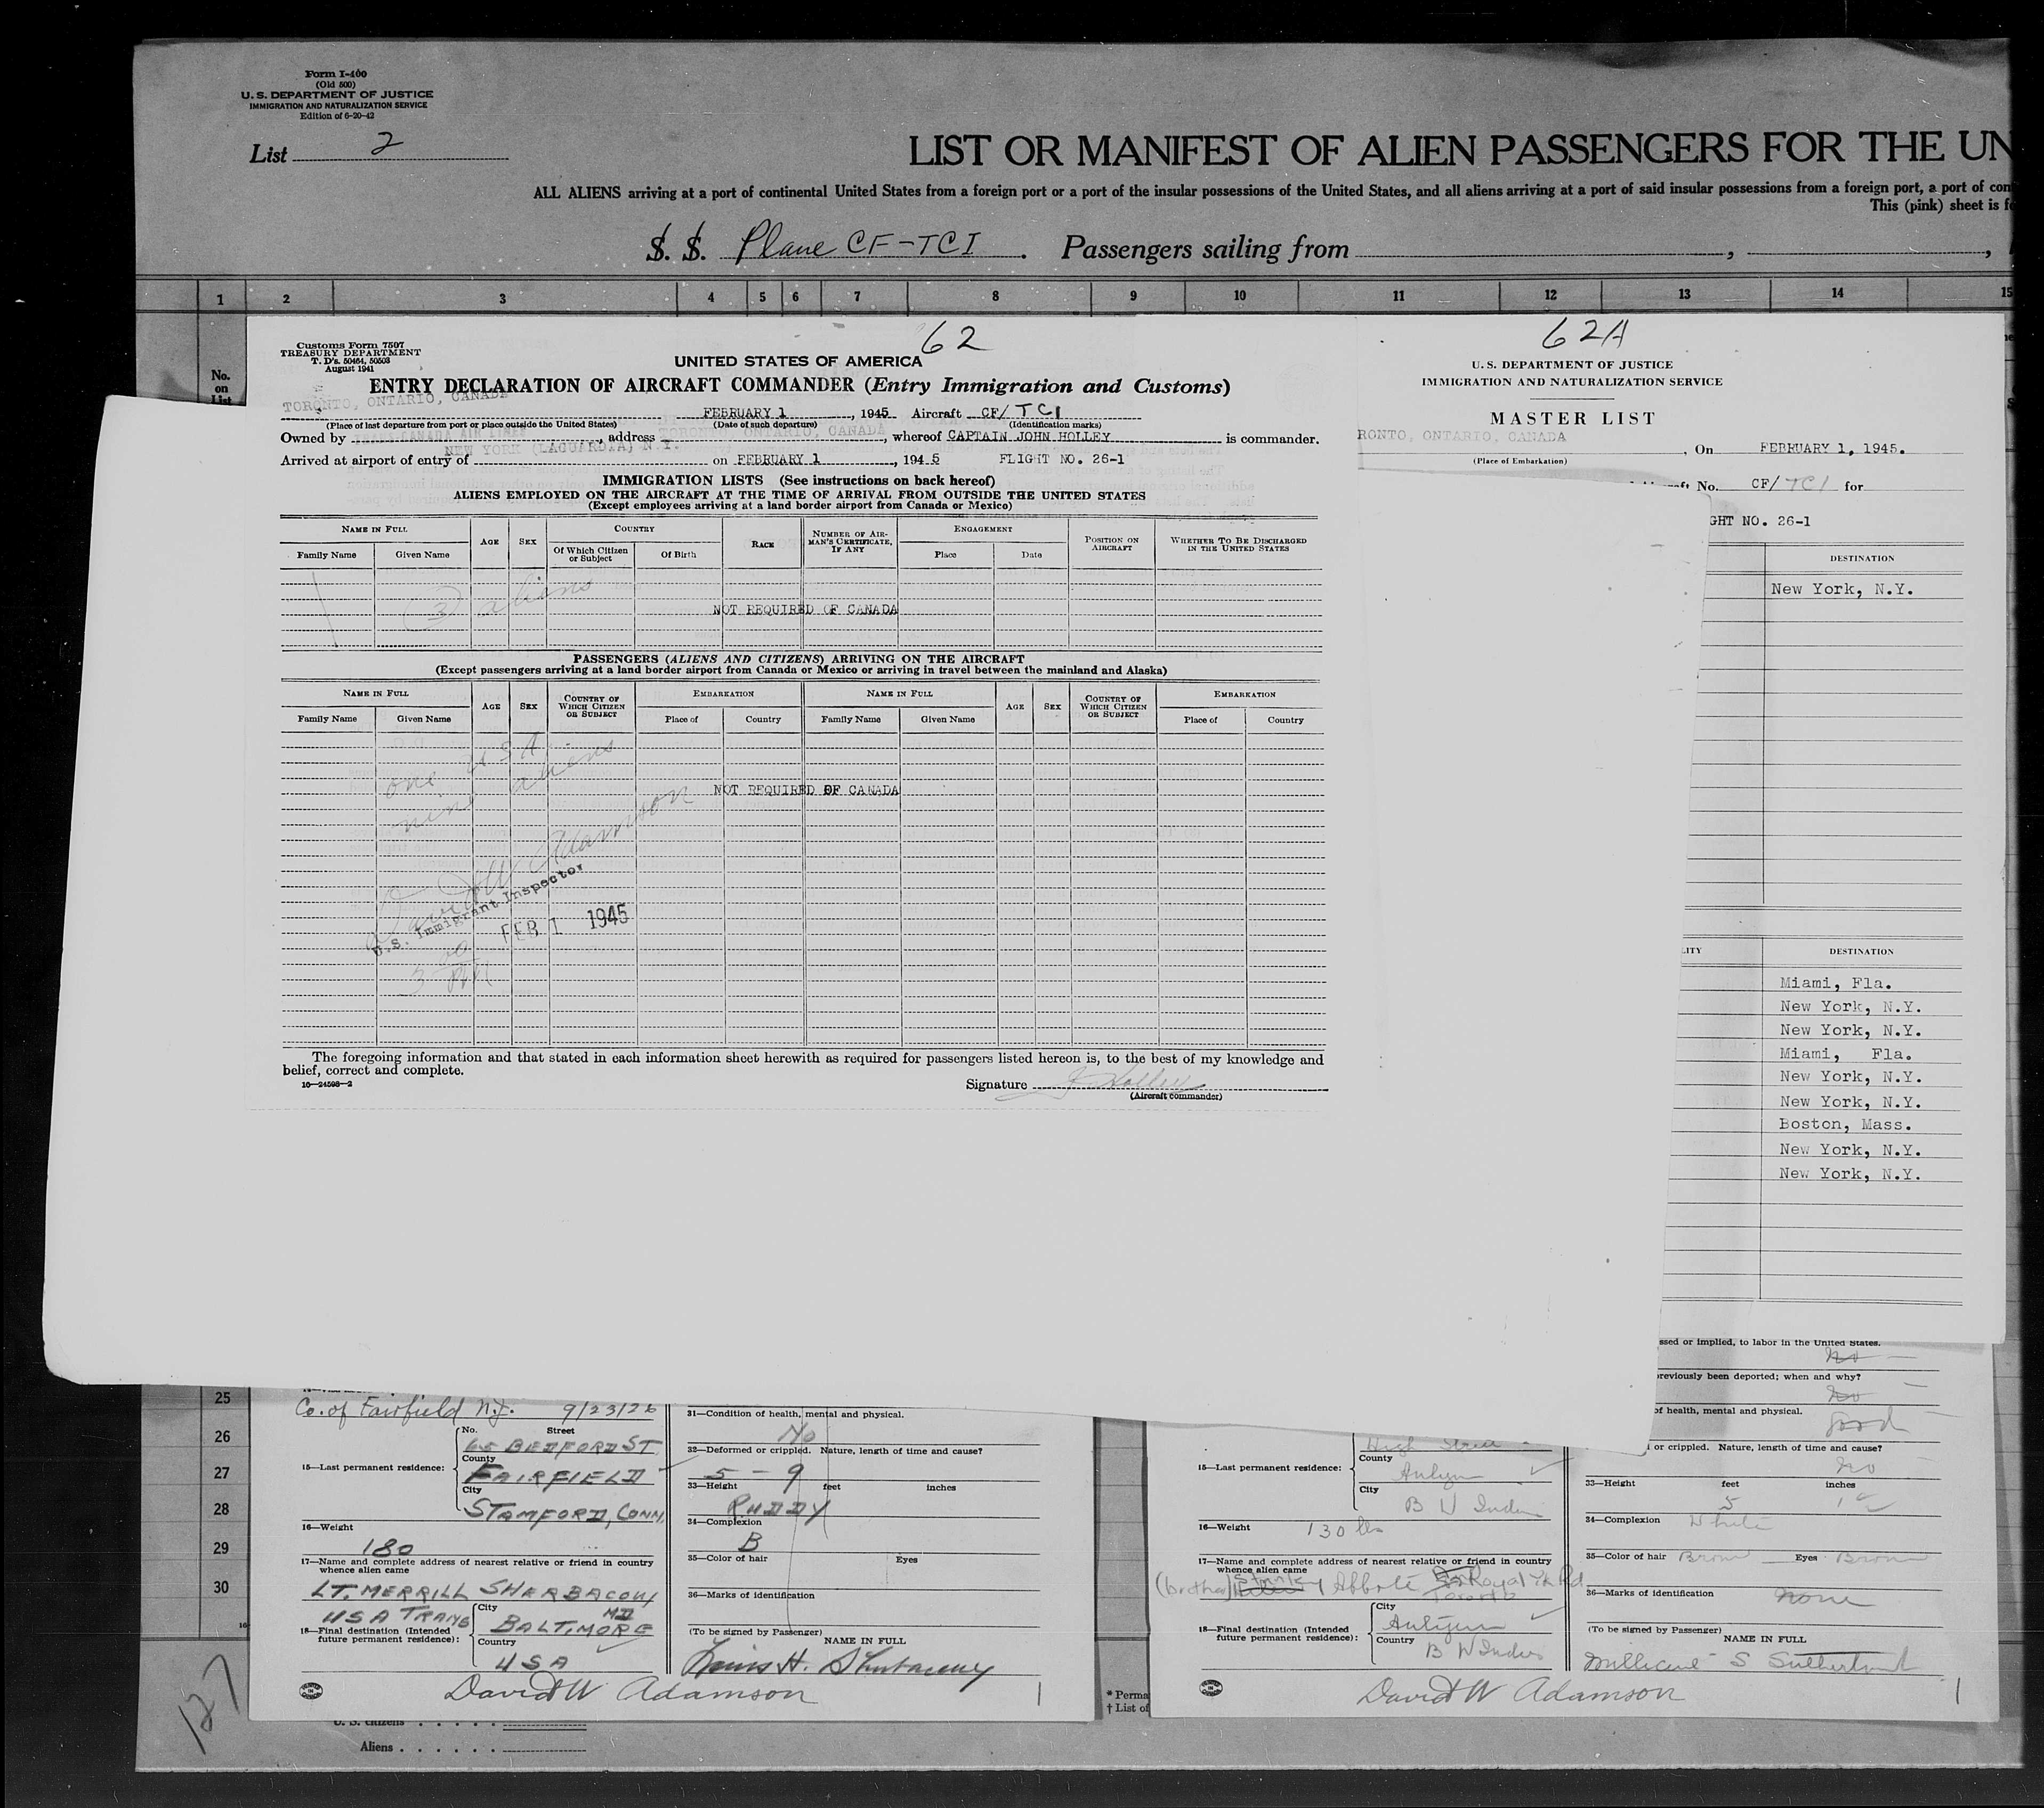 Form I-400
(Old 500)
U. S. DEPARTMENT OF JUSTICE
IMMIGRATION AND NATURALIZATION SERVICE
Edition of 6-20-42
List 2
LIST OR MANIFEST OF ALIEN PASSENGERS FOR THE UN
ALL ALIENS arriving at a port of continental United States from a foreign port or a port of the insular possessions of the United States, and all aliens arriving at a port of said insular possessions from a foreign port, a port of con
This (pink) sheet is f
S. S. Plane CF-TCI. Passengers sailing from
1 2 3 4 5 6 7 8 9 10 11 12 13 14 15
No.
on
List
62
Customs Form 7507
TREASURY DEPARTMENT
T. D's. 50464, 50503
August 1941
UNITED STATES OF AMERICA
ENTRY DECLARATION OF AIRCRAFT COMMANDER (Entry Immigration and Customs)
TORONTO, ONTARIO, CANADA
FEBRUARY 1, 1945 Aircraft CF/ TCI
(Place of last departure from port or place outside the United States) (Date of such departure) (Identification marks)
Owned by TRANS-CANADA AIR LINES, address TORONTO, ONTARIO, CANADA, whereof CAPTAIN JOHN HOLLEY is commander.
Arrived at airport of entry of NEW YORK (LAGUARDIA) N.Y. on FEBRUARY 1, 1945 FLIGHT NO. 26-1
IMMIGRATION LISTS (See instructions on back hereof)
ALIENS EMPLOYED ON THE AIRCRAFT AT THE TIME OF ARRIVAL FROM OUTSIDE THE UNITED STATES
(Except employees arriving at a land border airport from Canada or Mexico)
NAME IN FULL AGE SEX COUNTRY RACE NUMBER OF AIRMAN'S CERTIFICATE, IF ANY ENGAGEMENT POSITION ON AIRCRAFT WHETHER TO BE DISCHARGED IN THE UNITED STATES
Family Name Given Name Of Which Citizen or Subject Of Birth Place Date
(3) aliens
NOT REQUIRED OF CANADA
PASSENGERS (ALIENS AND CITIZENS) ARRIVING ON THE AIRCRAFT
(Except passengers arriving at a land border airport from Canada or Mexico or arriving in travel between the mainland and Alaska)
NAME IN FULL AGE SEX COUNTRY OF WHICH CITIZEN OR SUBJECT EMBARKATION NAME IN FULL AGE SEX COUNTRY OF WHICH CITIZEN OR SUBJECT EMBARKATION
Family Name Given Name Place of Country Family Name Given Name Place of Country
one USA
nine aliens
NOT REQUIRED OF CANADA
David W Adamson
U.S. Immigrant Inspector
FEB 1 1945
The foregoing information and that stated in each information sheet herewith as required for passengers listed hereon is, to the best of my knowledge and
belief, correct and complete.
16—24598-2
Signature J Holley
(Aircraft commander)
62A
U. S. DEPARTMENT OF JUSTICE
IMMIGRATION AND NATURALIZATION SERVICE
MASTER LIST
RONTO, ONTARIO, CANADA, On FEBRUARY 1, 1945.
(Place of Embarkation)
ft No. CF/ TCI for
GHT NO. 26-1
DESTINATION
New York, N.Y.
LITY DESTINATION
Miami, Fla.
New York, N.Y.
New York, N.Y.
Miami, Fla.
New York, N.Y.
New York, N.Y.
Boston, Mass.
New York, N.Y.
New York, N.Y.
25
26
27
28
29
30
Co. of Fairfield N.J. 9/23/26
No. Street
65 BEDFORD ST
15—Last permanent residence:
County
FAIRFIELD
City
STAMFORD, CONN.
16—Weight
180
17—Name and complete address of nearest relative or friend in country
whence alien came
LT. MERRILL SHERBACOW
USA TRANS
18—Final destination (Intended
future permanent residence):
City
BALTIMORE MD
Country
USA
31—Condition of health, mental and physical.
No
32—Deformed or crippled. Nature, length of time and cause?
5 - 9
33—Height feet inches
RUDDY
34—Complexion
B
35—Color of hair Eyes
36—Marks of identification
(To be signed by Passenger)
NAME IN FULL
David W Adamson
ssed or implied, to labor in the United States.
No
previously been deported; when and why?
No
of health, mental and physical.
good
or crippled. Nature, length of time and cause?
No
High Street
15—Last permanent residence:
County
City
B W Indies
16—Weight 130 lbs
17—Name and complete address of nearest relative or friend in country
whence alien came
(brother) Abbott Royal Yk Rd
Toronto
18—Final destination (Intended
future permanent residence):
City
Country
B W Indies
33—Height feet inches
5
34—Complexion White
35—Color of hair Brown Eyes Brown
36—Marks of identification none
(To be signed by Passenger)
NAME IN FULL
Millicent S Sutherland
David W Adamson
* Perma
† List of
187
U. S. citizens
Aliens